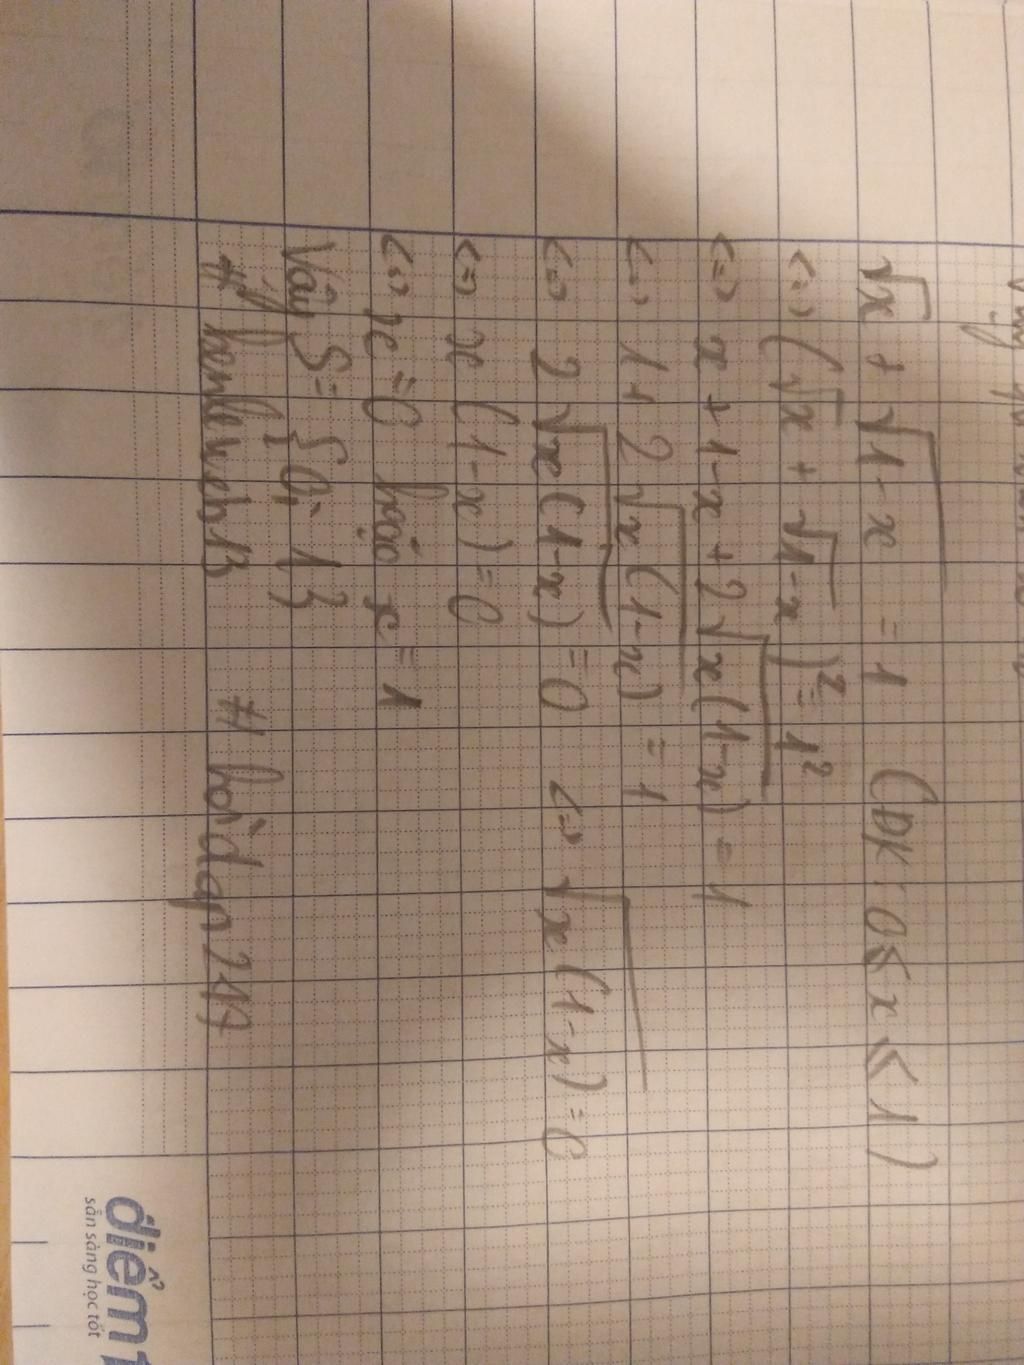 √x + √1-x = 1 (ĐK: 0≤ x ≤ 1)
<=> (√x + √1-x)² = 1²
<=> x + 1-x + 2√x(1-x) = 1
<=> 1+ 2√x(1-x) = 1
<=> 2√x(1-x) = 0 <=> √x(1-x) = 0
<=> x (1-x) = 0
<=> x = 0 hoặc x = 1
Vậy S= {0; 1}
# hoidap247
điểm 1
sẵn sàng học tốt